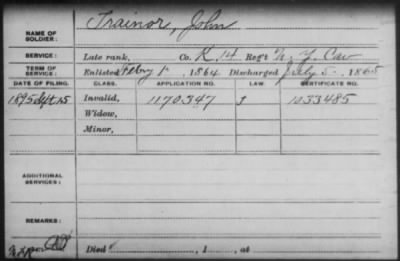 NAME OF SOLDIER: Trainor, John
SERVICE: Late rank, Co. K 14 Reg't N. Y. Cav
TERM OF SERVICE: Enlisted Feby 1, 1864 Discharged July 5, 1865
DATE OF FILING. CLASS. APPLICATION NO. LAW. CERTIFICATE NO.
1895 Sept 15 Invalid, 1170347 J 1033485
Widow,
Minor,
ADDITIONAL SERVICES:
REMARKS:
Died , 1 , at